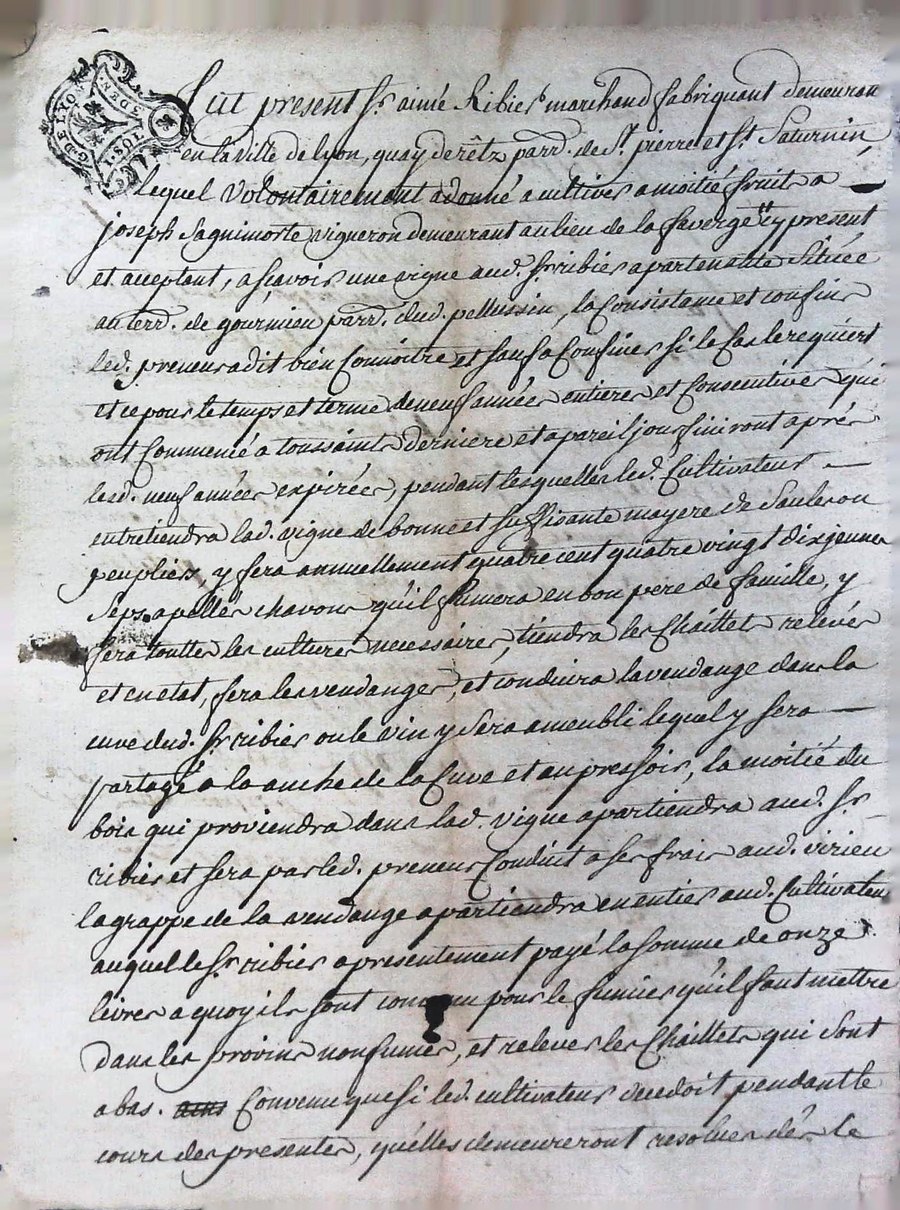 G. DE LYON
DEUX SOLS
Fut present Sr. aimé Ribier marchand fabriquant demeurant
en la ville de lyon, quay de rêtz parr. de St. pierre et St. Saturnin,
lequel volontairement a donné a cultiver a moitié fruit a
joseph Saguimorte vigneron demeurant au lieu de la faverge icy present
et acceptant, ascavoir une vigne aud. Sr. ribier apartenante Située
au terr. de gournieu parr. dud. pellussin, la Consistance et confins
led. preneur a dit bien Connoitre et sauf a Confiner si le Cas le requiert
et ce pour le temps et terme de neuf année entieres et Consecutives qui
ont Commencé a toussaint derniere et a pareil jour finiront aprés
lesd. neuf années expirées, pendant lesquelles led. Cultivateur
entretiendra lad. vigne de bonne et suffisante mayere de Saule ou
peuplier, y fera annuellement quatre cent quatre vingt dix jeunes
Seps apellés chavons qu'il fumera en bon pere de famille, y
fera toutte les cultures necessaires, tiendra les Chaillets relevés
et en etat, fera les vendanges, et conduira la vendange dans la
cuve dud. Sr. ribier ou le vin y sera ameubli lequel y sera
partagé a la anche de la Cuve et au pressoir, la moitié du
bois qui proviendra dans lad. vigne apartiendra aud. Sr.
ribier et sera par led. preneur Conduit a ses frais aud. virieu
la grappe de la vendange apartiendra en entier aud. Cultivateur
auquel le Sr. ribier a presentement payé la somme de onze
livres a quoy ils sont pour le fumier qu'il faut mettre
dans les provins non fumés, et relever les Chaillets qui sont
a bas. Convenu que si led. cultivateur decedoit pendant le
cours des presentes, qu'elles demeureront resolues dés le